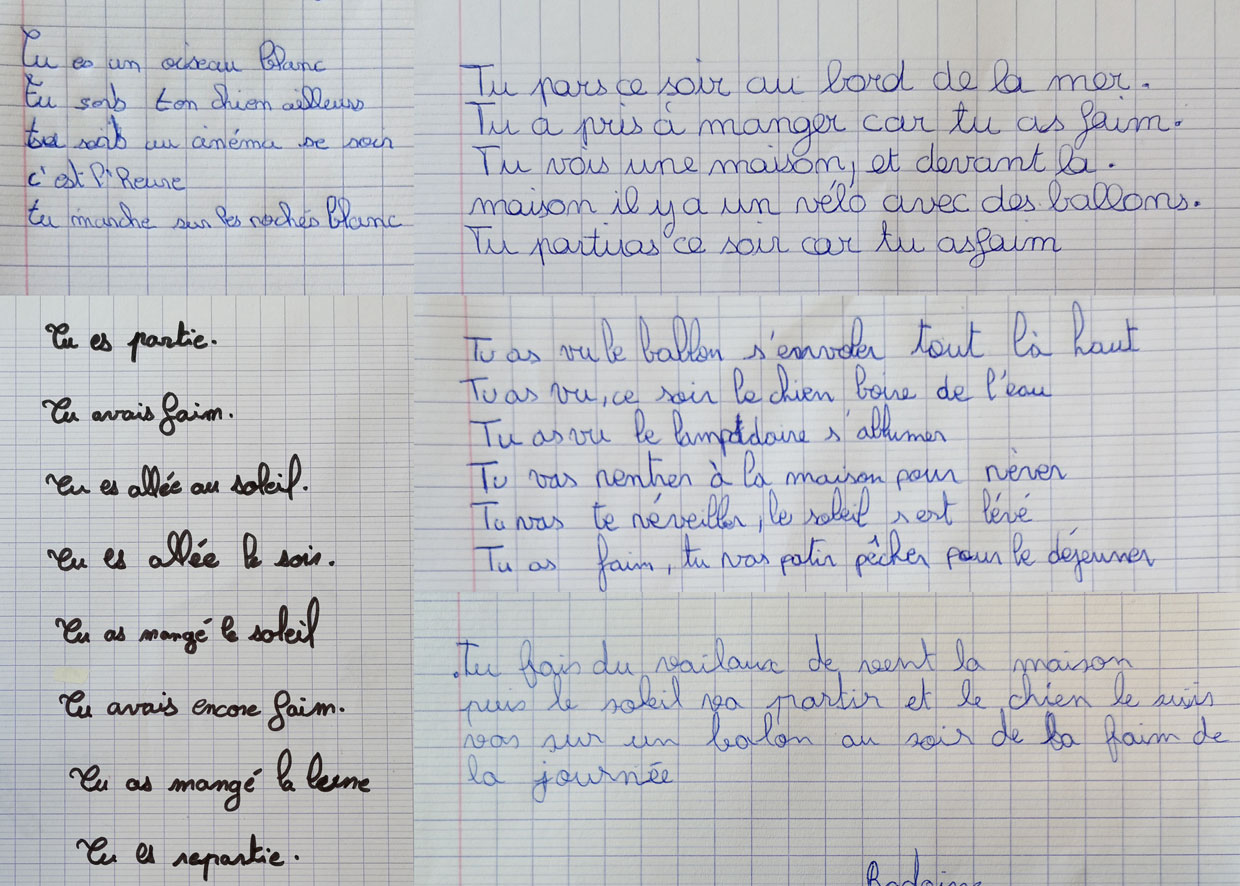 Tu es un oiseau blanc
tu sors ton chien ailleurs
tu sors au cinéma se soir
c'est l'Heure
tu marche sur les rochés blanc
Tu pars ce soir au bord de la mer.
Tu a pris à manger car tu as faim.
Tu vois une maison, et devant la.
maison il y a un vélo avec des ballons.
Tu partiras ce soir car tu as faim
Tu es partie.
Tu avais faim.
Tu es allée au soleil.
Tu es allée le soir.
Tu as mangé le soleil
Tu avais encore faim.
Tu as mangé la leune
Tu es repartie.
Tu as vu le ballon s'envoler tout là haut
Tu as vu, ce soir le chien boire de l'eau
Tu as vu le lampadaire s'allumer
Tu vas rentrer à la maison pour rêver
Tu vas te réveiller, le soleil s'est lévé
Tu as faim, tu vas patir pêcher pour le déjeuner
.Tu fais du vailaux de vent la maison
puis le soleil va partir et le chien le suis
vas sur un balon au soir de la faim de
la journée